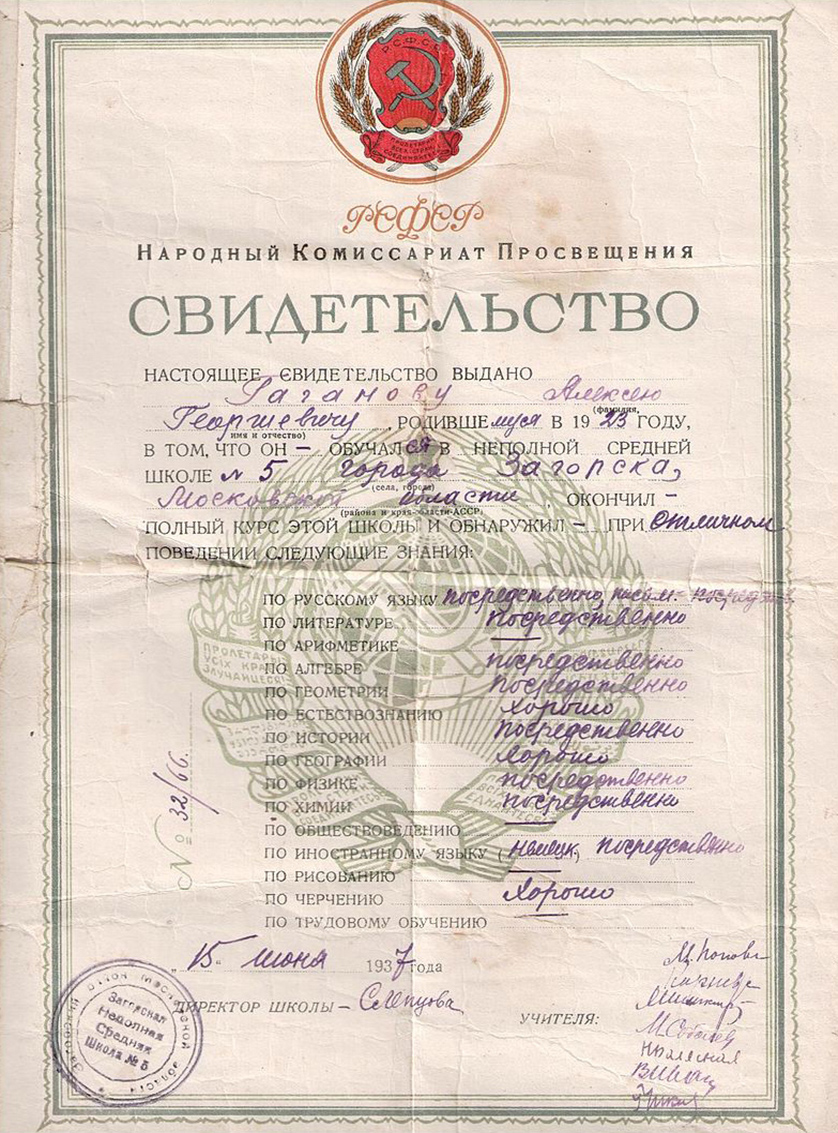 РСФСР
ПРОЛЕТАРИИ
ВСЕХ СТРАН
СОЕДИНЯЙТЕСЬ
РСФСР
НАРОДНЫЙ КОМИССАРИАТ ПРОСВЕЩЕНИЯ
СВИДЕТЕЛЬСТВО
НАСТОЯЩЕЕ СВИДЕТЕЛЬСТВО ВЫДАНО
Гаганову Алексею
(фамилия,
Георгиевичу, РОДИВШЕМУСЯ В 1923 ГОДУ,
имя и отчество)
В ТОМ, ЧТО ОН – ОБУЧАЛСЯ В НЕПОЛНОЙ СРЕДНЕЙ
ШКОЛЕ № 5 города Загорска,
(села, города)
Московской области, ОКОНЧИЛ –
(района и края-области-АССР)
ПОЛНЫЙ КУРС ЭТОЙ ШКОЛЫ И ОБНАРУЖИЛ – ПРИ отличном
ПОВЕДЕНИИ СЛЕДУЮЩИЕ ЗНАНИЯ:
ПО РУССКОМУ ЯЗЫКУ посредственно, письм.- посредств.
ПО ЛИТЕРАТУРЕ посредственно
ПО АРИФМЕТИКЕ —
ПО АЛГЕБРЕ посредственно
ПО ГЕОМЕТРИИ посредственно
ПО ЕСТЕСТВОЗНАНИЮ хорошо
ПО ИСТОРИИ посредственно
ПО ГЕОГРАФИИ хорошо
ПО ФИЗИКЕ посредственно
ПО ХИМИИ посредственно
ПО ОБЩЕСТВОВЕДЕНИЮ —
ПО ИНОСТРАННОМУ ЯЗЫКУ (немецк.) посредственно
ПО РИСОВАНИЮ —
ПО ЧЕРЧЕНИЮ хорошо
ПО ТРУДОВОМУ ОБУЧЕНИЮ —
№ 32/66.
ПРОЛЕТАРІ
УСІХ КРАЇН
"15" июня 1937 года
ДИРЕКТОР ШКОЛЫ – Слепцова
УЧИТЕЛЯ:
М. Попова
Загорская
Неполная
Средняя
Школа № 5